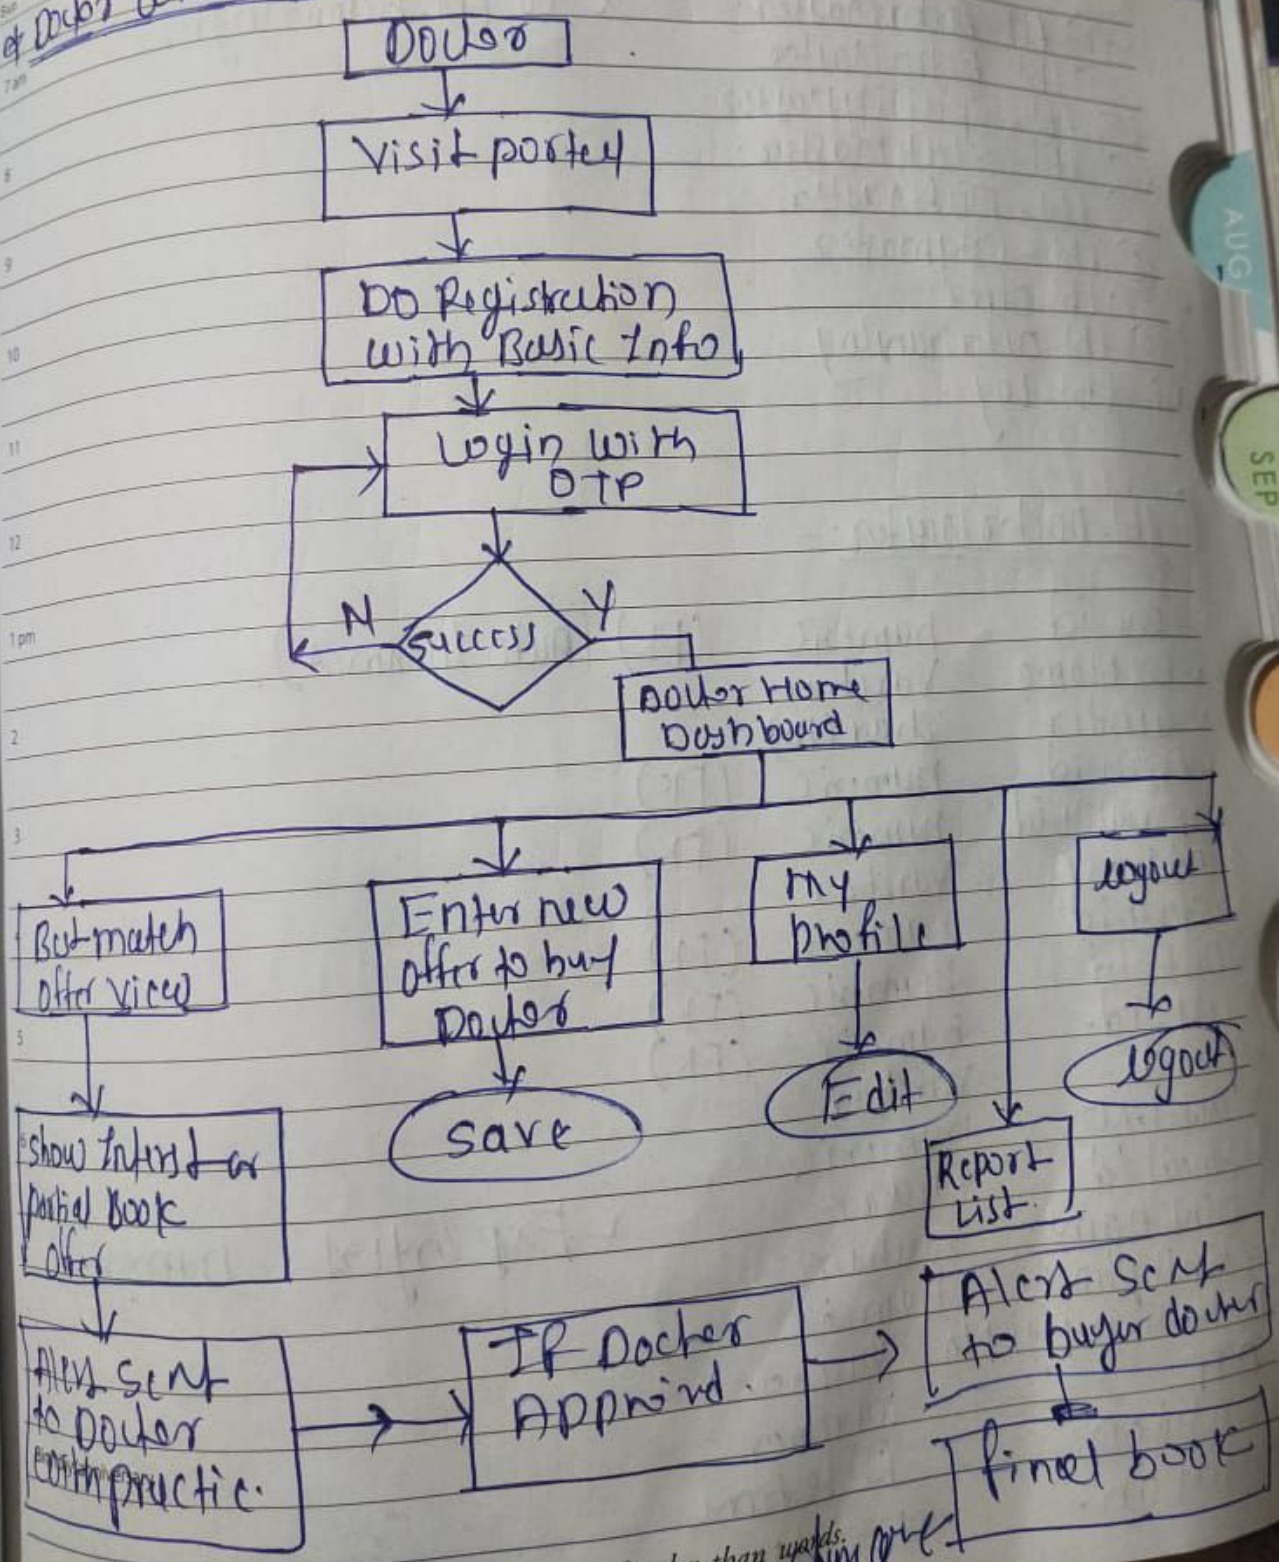 Doctor
7am
Visit portal
8
9
DO Registration
with Basic Info
10
Login with
OTP
11
12
N
Y
success
1 pm
Doctor Home
Dashboard
2
3
Best match
offer view
Enter new
offer to buy
Doctor
my
profile
logout
5
save
Edit
logout
show Interst or
partial Book
offer
Report
List.
Alert Sent
to Doctor
with practic.
IF Doctor
Approved.
Alert Sent
to buyer doctor
final book
than words.
AUG
SEP